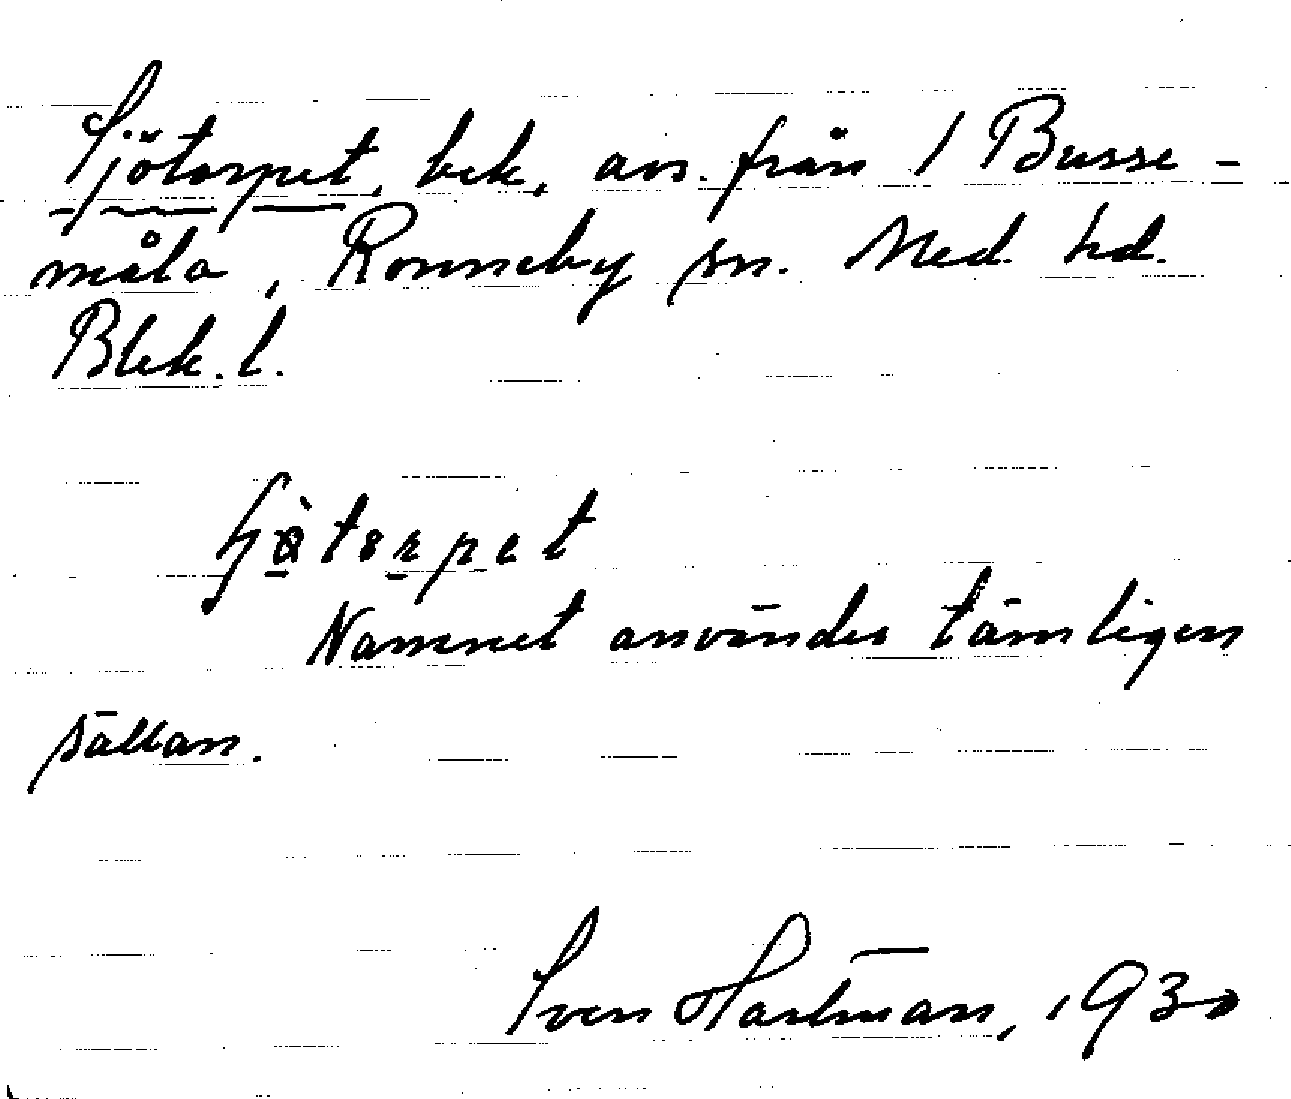 Sjötorpet, bek, avs. från 1 Busse-
måla, Ronneby sn. Med hd.
Blek. l.
Namnet användes tämligen
sällan.
Sven Hartman, 1930